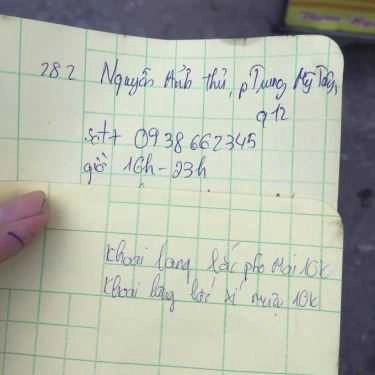 282 Nguyễn Ảnh thủ, p Trung Mỹ Tây,
q 12
sđt 0938662345
giờ 16h - 23h
khoai lang lắc pho mai 10k
khoai lang lắc xí muội 10k